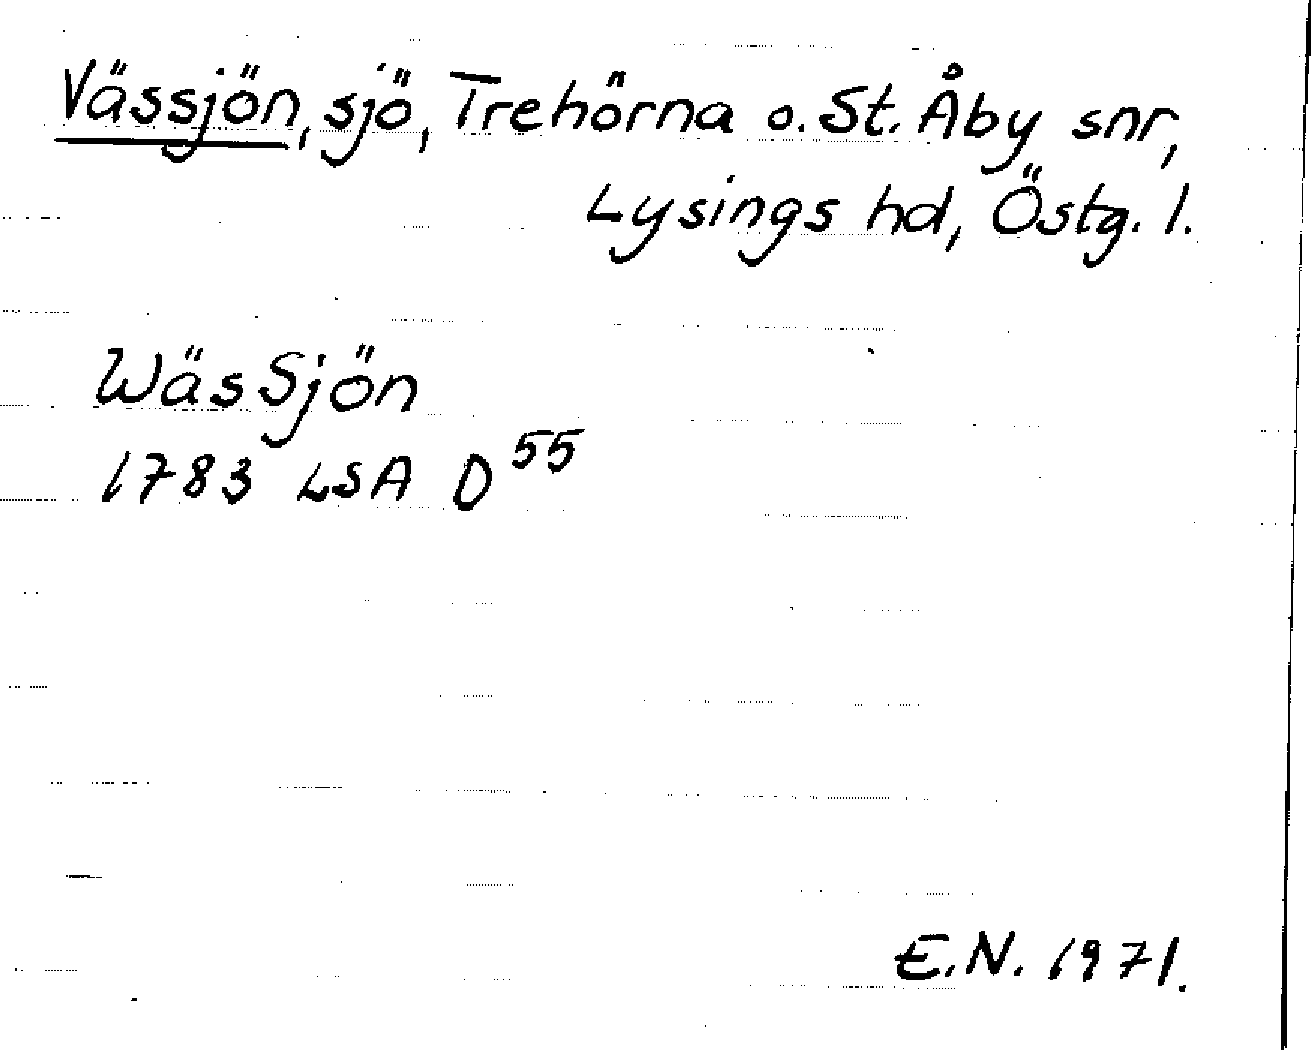 Vässjön, sjö, Trehörna o. St. Åby snr,
Lysings hd, Östg. l.
WäsSjön
1783 LSA D 55
E.N. 1971.